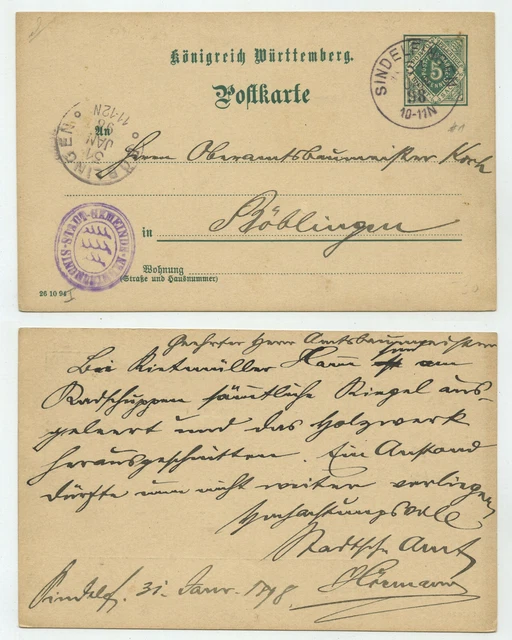 Königreich Württemberg.
Postkarte
SINDELF
98
10-11N
5
BÖBLINGEN
31
JAN
98
11-12N
An
Herrn Oberamtsbaumeister Koch
in Böblingen
Wohnung
(Straße und Hausnummer)
26 10 94
STADT-GEMEINDE
Geehrter Herr Amtsbaumeister
Bei Rietmüller Hann sind am
Radschuppen sämtliche Riegel aus-
geleert und das Holzwerk
herausgeschnitten. Ein Anstand
dürfte nun nicht weiter vorliegen
Hochachtungsvoll
Stadtsch. Amt
Hörmann
Sindelf. 31. Janr. 1898